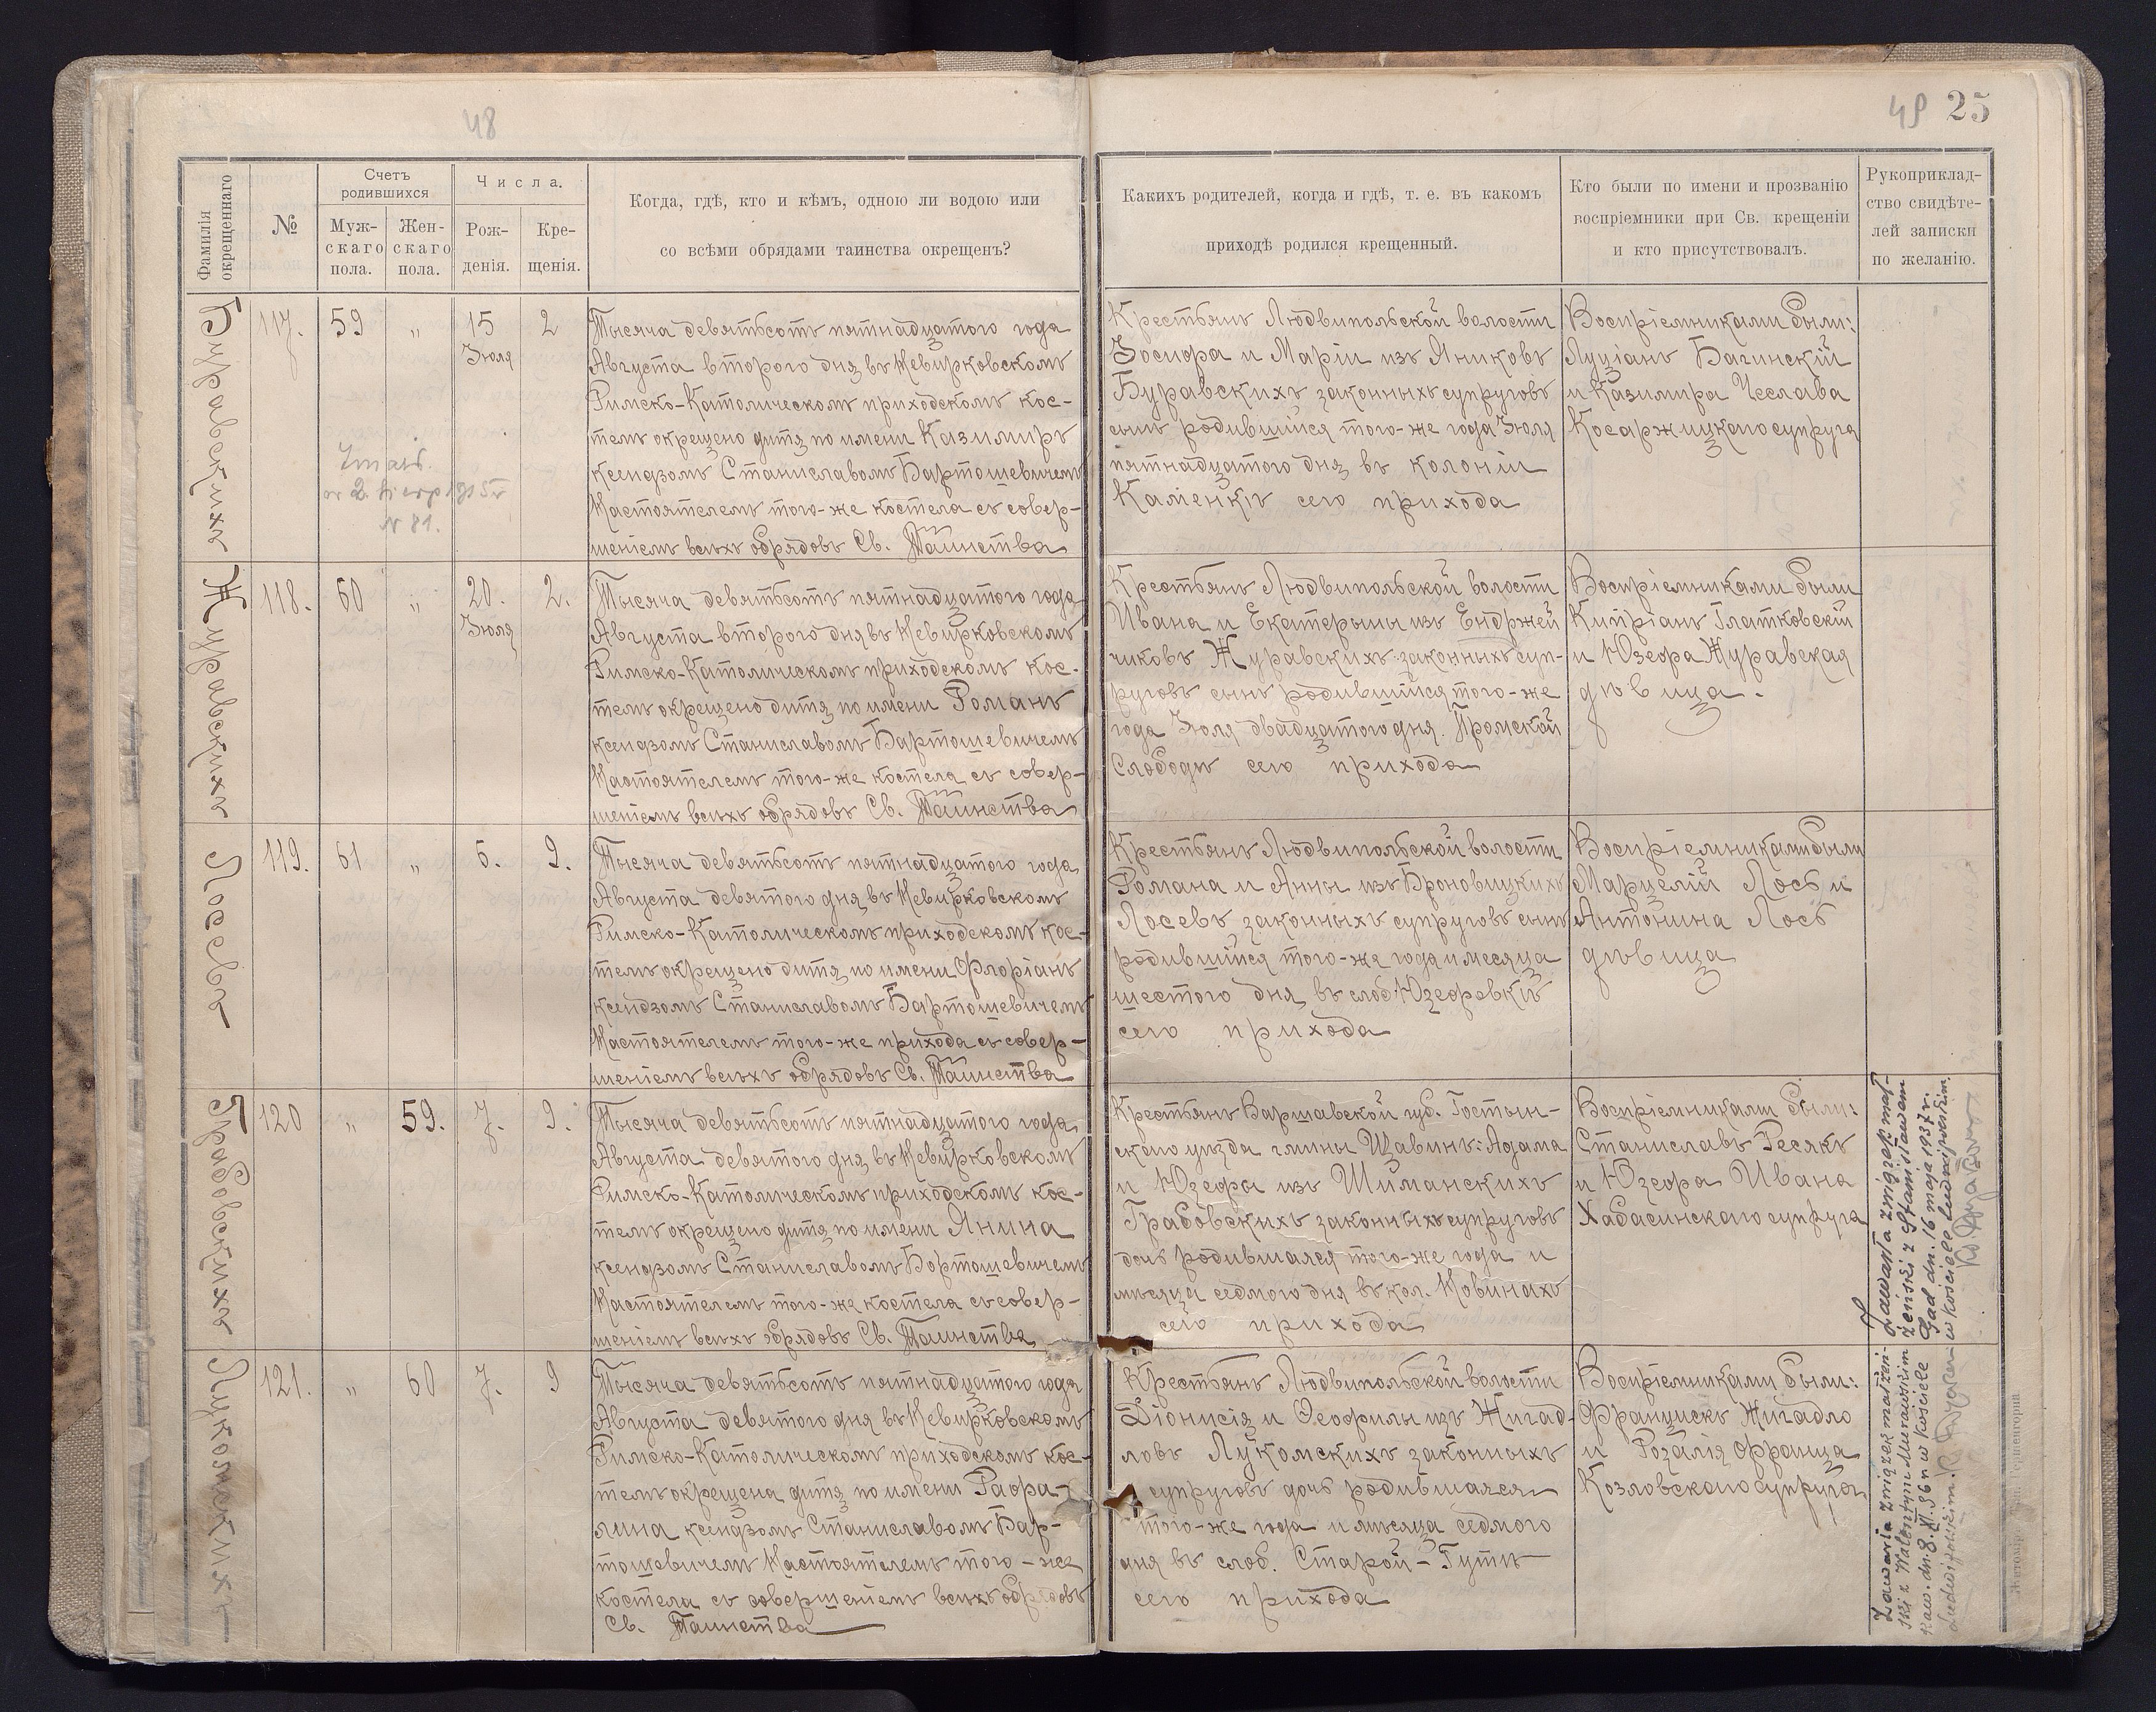 48
49 25
Фамилія
окрещеннаго
№
Счетъ
родившихся
Муж-
скаго
пола.
Жен-
скаго
пола.
Числа.
Рож-
денія.
Кре-
щенія.
Когда, гдѣ, кто и кѣмъ, одною ли водою или
со всѣми обрядами таинства окрещенъ?
Какихъ родителей, когда и гдѣ, т. е. въ какомъ
приходѣ родился крещенный.
Кто были по имени и прозванію
воспріемники при Св. крещеніи
и кто присутствовалъ.
Рукоприклад-
ство свидѣте-
лей записки
по желанію.
Буравскихъ
117. 59 " 15 2
Іюля
Zmarł.
2 sierp 1915 r
N 81.
Тысяча девятьсотъ пятнадцатого года
Августа второго дня въ Невирковскомъ
Римско-Католическомъ приходскомъ кос-
телѣ окрещено дитя по имени Казимиръ
ксендзомъ Станиславомъ Бартошевичемъ
Настоятелемъ того-же костела съ совер-
шеніемъ всѣхъ обрядовъ Св. Таинства
Крестьянъ Людвипольской волости
Іосифа и Маріи изъ Яниковъ
Буравскихъ законныхъ супруговъ
сынъ родившійся того-же года Іюля
пятнадцатого дня въ колоніи
Каменкѣ сего прихода
Воспріемниками были:
Луціанъ Багинскій
и Казимира Чеслава
Косаржицкаго супруга
Журавскихъ
118. 60 " 20. 2.
Іюля
Тысяча девятьсотъ пятнадцатого года
Августа второго дня въ Невирковскомъ
Римско-Католическомъ приходскомъ кос-
телѣ окрещено дитя по имени Романъ
ксендзомъ Станиславомъ Бартошевичемъ
Настоятелемъ того-же костела съ совер-
шеніемъ всѣхъ обрядовъ Св. Таинства
Крестьянъ Людвипольской волости
Ивана и Екатерыны изъ Ендржей
чиковъ Журавскихъ законныхъ суп-
руговъ сынъ родившійся того-же
года Іюля двадцатого дня.
Слободѣ сего прихода
Воспріемниками были
Кипріанъ Глатковскій
и Юзефа Журавская
дѣвица.
Лосевъ
119. 61 " 6. 9.
Тысяча девятьсотъ пятнадцатого года
Августа девятого дня въ Невирковскомъ
Римско-Католическомъ приходскомъ кос-
телѣ окрещено дитя по имени Флоріанъ
ксендзомъ Станиславомъ Бартошевичемъ
Настоятелемъ того-же прихода съ совер-
шеніемъ всѣхъ обрядовъ Св. Таинства
Крестьянъ Людвипольской волости
Романа и Анны изъ Броновицкихъ
Лосевъ законныхъ супруговъ сынъ
родившійся того-же года и месяца
шестого дня въ слоб. Юзефовкѣ
сего прихода
Воспріемниками были
Марцелій Лось и
Антонина Лось
дѣвица
Грабовскихъ
120 " 59. 7. 9.
Тысяча девятьсотъ пятнадцатого года
Августа девятого дня въ Невирковскомъ
Римско-Католическомъ приходскомъ кос-
телѣ окрещено дитя по имени Янина
ксендзомъ Станиславомъ Бортошевичемъ
Настоятелемъ того-же костела съ совер-
шеніемъ всѣхъ обрядовъ Св. Таинства
Крестьянъ Варшавской губ. Гостын-
скаго уѣзда гмины Щавинъ: Адама
и Юзефы изъ Шиманскихъ
Грабовскихъ законныхъ супруговъ
дочь родившаяся того-же года и
мѣсяца седмого дня въ кол. Новинахъ
сего прихода
Воспріемниками были:
Станиславъ Ресякъ
и Юзефа Ивана
Хабасинскаго супруга
Zawarła związek mał-
żeński z Stanisławem
Gad dn. 16 maja 1937 r.
w kościele ludwipolskim.
Лукомскихъ
121. " 60 7. 9
Тысяча девятьсотъ пятнадцатого года
Августа девятого дня въ Невирковскомъ
Римско-Католическомъ приходскомъ кос-
телѣ окрещена дитя по имени Рафа-
лина ксендзомъ Станиславомъ Бар-
тошевичемъ Настоятелемъ того-же
костела съ совершеніемъ всѣхъ обрядовъ
Св. Таинства
Крестьянъ Людвипольской волости
Діонисія и Феофилы изъ Жигад-
ловъ Лукомскихъ законныхъ
супруговъ дочь родившаяся
того-же года и мѣсяца седмого
дня въ слоб. Старой-Гутѣ
сего прихода
Воспріемниками были:
Францискъ Жигадло
и Розалія Франца
Козловскаго супруга
Zawarła związek małżeń-
ski z Walentym Murawskim
kaw. dn. 8.XI.36 r. w kościele
ludwipolskim.